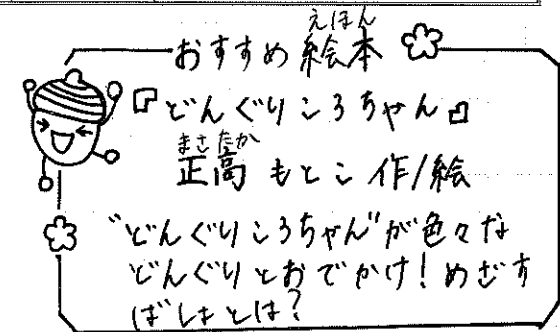 おすすめ絵本
えほん
『どんぐりころちゃん』
まさたか
正高 もとこ 作/絵
"どんぐりころちゃん"が色々な
どんぐりとおでかけ!めざす
ばしょとは?